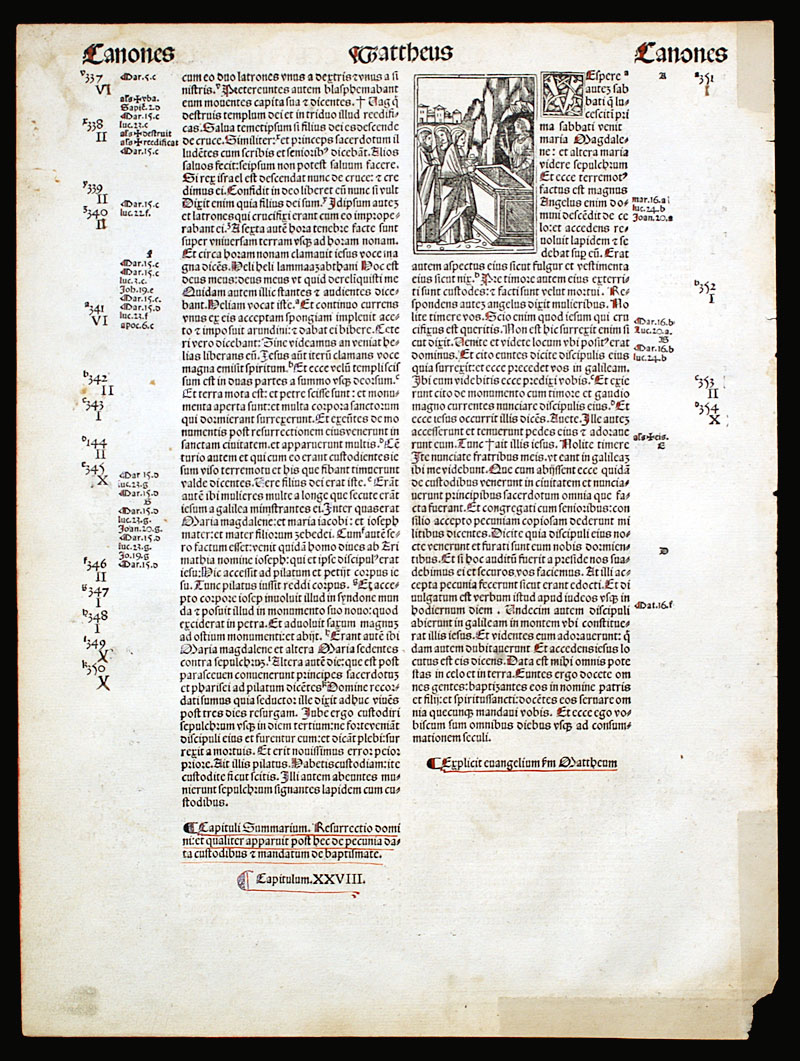 Canones
Mattheus
Canones
337
VI
338
II
339
II
340
II
341
VI
342
II
343
I
344
II
345
X
346
II
347
I
348
I
349
V
350
X
Mar.5.c
als ✠ vba.
Sapiē.2.d
Mar.15.c
luc.23.c
als ✠ destruit
als ✠ reedificat
Mar.15.c
Mar.15.c
luc.22.f.
f
Mar.15.c
Mar.15.c
Joh.19.e
Mar.15.c.
Mar.15.d
luc.23.f
apoc.6.c
Mar 15.d
luc.23.g
Mar.15.d
Mar.15.d
luc.23.g.
Joan.20.g.
Mar.15.d
luc.23.g.
Jo.19.g
Mar.15.d
cum eo duo latrones vnus a dextris ⁊ vnus a si
nistris. Pretereuntes autem blasphemabant
eum mouentes capita sua ⁊ dicentes. † Uag q̄
destruis templum dei et in triduo illud reedifi-
cas. Salua temetipsum si filius dei es descende
de cruce. Similiter: et princeps sacerdotum il
ludētes cum scribis et seniorib⁹ dicebāt. Alios
saluos fecit: seipsum non potest saluum facere.
Si rex israel est descendat nunc de cruce: ⁊ cre
dimus ei. Confidit in deo liberet eū nunc si vult
Dixit enim quia filius dei sum. Idipsum autez
et latrones qui crucifixi erant cum eo imprope-
rabant ei. A sexta autē hora tenebre facte sunt
super vniuersam terram vsq̄ ad horam nonam.
Et circa horam nonam clamauit iesus voce ma
gna dicēs. Heli heli lammaazabthani Hoc est
deus meus: deus meus vt quid dereliq̄sti me
Quidam autem illic stantes ⁊ audientes dice-
bant. Heliam vocat iste. Et continuo currens
vnus ex eis acceptam spongiam impleuit ace-
to ⁊ imposuit arundini: ⁊ dabat ei bibere. Cete
ri vero dicebant: Sine videamus an veniat he-
lias liberans eū. Jesus aūt iterū clamans voce
magna emisit spiritum. Et ecce velū templi scis
sum est in duas partes a summo vsq̄ deorsum.
Et terra mota est: et petre scisse sunt: et monu-
menta aperta sunt: et multa corpora sanctorum
qui dormierant surrexerunt. Et exeūtes de mo
numentis post resurrectionem eius venerunt in
sanctam ciuitatem. et apparuerunt multis. Cē
turio autem et qui cum eo erant custodientes ie
sum viso terremotu et his que fiebant timuerunt
valde dicentes. Uere filius dei erat iste. Erāt
autē ibi mulieres multe a longe que secute erāt
iesum a galilea ministrantes ei. Inter quas erat
Maria magdalene: et maria iacobi: et ioseph
mater: et mater filiorum zebedei. Cum aūt se-
ro factum esset: venit quidā homo diues ab Ari
mathia nomine ioseph: qui et ipse discipul⁹ erat
iesu: Hic accessit ad pilatum et petijt corpus ie
su. Tunc pilatus iussit reddi corpus. Et acce-
pto corpore iosep inuoluit illud in syndone mun
da ⁊ posuit illud in monumento suo nouo: quod
exciderat in petra. Et aduoluit saxum magnuz
ad ostium monumenti: et abijt. Erant autē ibi
Maria magdalene et altera Maria sedentes
contra sepulchruz. Altera autē die: que est post
parasceuen conuenerunt principes sacerdotuz
et pharisei ad pilatum dicētes Domine recor-
dati sumus quia seductor ille dixit adhuc viuēs
post tres dies resurgam. Jube ergo custodiri
sepulchrum vsq̄ in diem tertium: ne forte veniāt
discipuli eius et furentur eum: et dicāt plebi: sur
rexit a mortuis. Et erit nouissimus error peior
priore. Ait illis pilatus. Habetis custodiam: ite
custodite sicut scitis. Illi autem abeuntes mu-
nierunt sepulchrum signantes lapidem cum cu-
stodibus.
Capituli Summarium. Resurrectio domi
ni: et qualiter apparuit post hec de pecunia da-
ta custodibus ⁊ mandatum de baptismate.
Capitulum.XXVIII.
VEspere
autez sab
bati q̄ lu-
cescit i pri
ma sabbati venit
maria Magdale-
ne: et altera maria
videre sepulchrum
Et ecce terremot⁹
factus est magnus
Angelus enim do-
mini descēdit de ce
lo: et accedens re-
uoluit lapidem ⁊ se
debat sup̄ eū. Erat
autem aspectus eius sicut fulgur et vestimenta
eius sicut nix. Pre timore autem eius exterri-
ti sunt custodes: ⁊ facti sunt velut mortui. Re-
spondens autez angelus dixit mulieribus. No
lite timere vos. Scio enim quod iesum qui cru
cifixus est queritis. Non est hic surrexit enim si
cut dixit. Uenite et videte locum vbi posit⁹ erat
dominus. Et cito euntes dicite discipulis eius
quia surrexit: et ecce precedet vos in galileam.
Ibi eum videbitis ecce predixi vobis. Et exie
runt cito de monumento cum timore et gaudio
magno currentes nunciare discipulis eius. Et
ecce iesus occurrit illis dicēs. Auete. Ille autez
accesserunt et tenuerunt pedes eius ⁊ adoraue
runt eum. Tunc † ait illis iesus. Nolite timere
Ite nunciate fratribus meis. vt eant in galileaz
ibi me videbunt. Que cum abijssent ecce quidā
de custodibus venerunt in ciuitatem et nuncia-
uerunt principibus sacerdotum omnia que fa-
cta fuerant. Et congregati cum senioribus: con
silio accepto pecuniam copiosam dederunt mi
litibus dicentes. Dicite quia discipuli eius no-
cte venerunt et furati sunt eum nobis dormien-
tibus. Et si hoc auditū fuerit a preside nos sua-
debimus ei et securos vos faciemus. At illi ac-
cepta pecunia fecerunt sicut erant edocti. Et di
uulgatum est verbum istud apud iudeos vsq̄ in
hodiernum diem. Undecim autem discipuli
abierunt in galileam in montem vbi constitue-
rat illis iesus. Et videntes eum adorauerunt: q̄
dam autem dubitauerunt Et accedens iesus lo
cutus est eis dicens. Data est mihi omnis pote
stas in celo et in terra. Euntes ergo docete om
nes gentes: baptizantes eos in nomine patris
et filij: et spiritussancti: docētes eos seruare om
nia quecunq̄ mandaui vobis. Et ecce ego vo-
biscum sum omnibus diebus vsq̄ ad consum-
mationem seculi.
Explicit euangelium ſm Mattheum
A
mar.16.a
luc.24.b
Joan.20.a
Mar.16.b
luc.20.a.
B
Mar.16.b
luc.24.b
als ✠ eis.
E
D
Mat.16.f
351
I
352
I
353
II
354
X